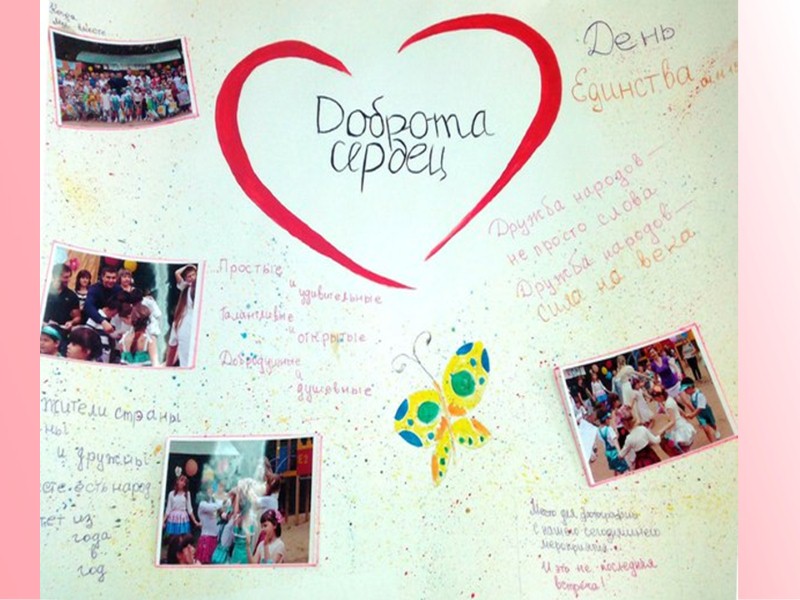 Когда
мы вместе
Доброта
сердец
День
Единства
Дружба народов —
не просто слова
Дружба народов —
сила на века
Простые
и
удивительные
Талантливые
и
открытые
Добродушные
и
душевные
жители страны
ны
и дружны
есть народ
ет из
года
в
год
Место для фотографий
с нашего сегодняшнего
мероприятия.
И это не последняя
встреча!